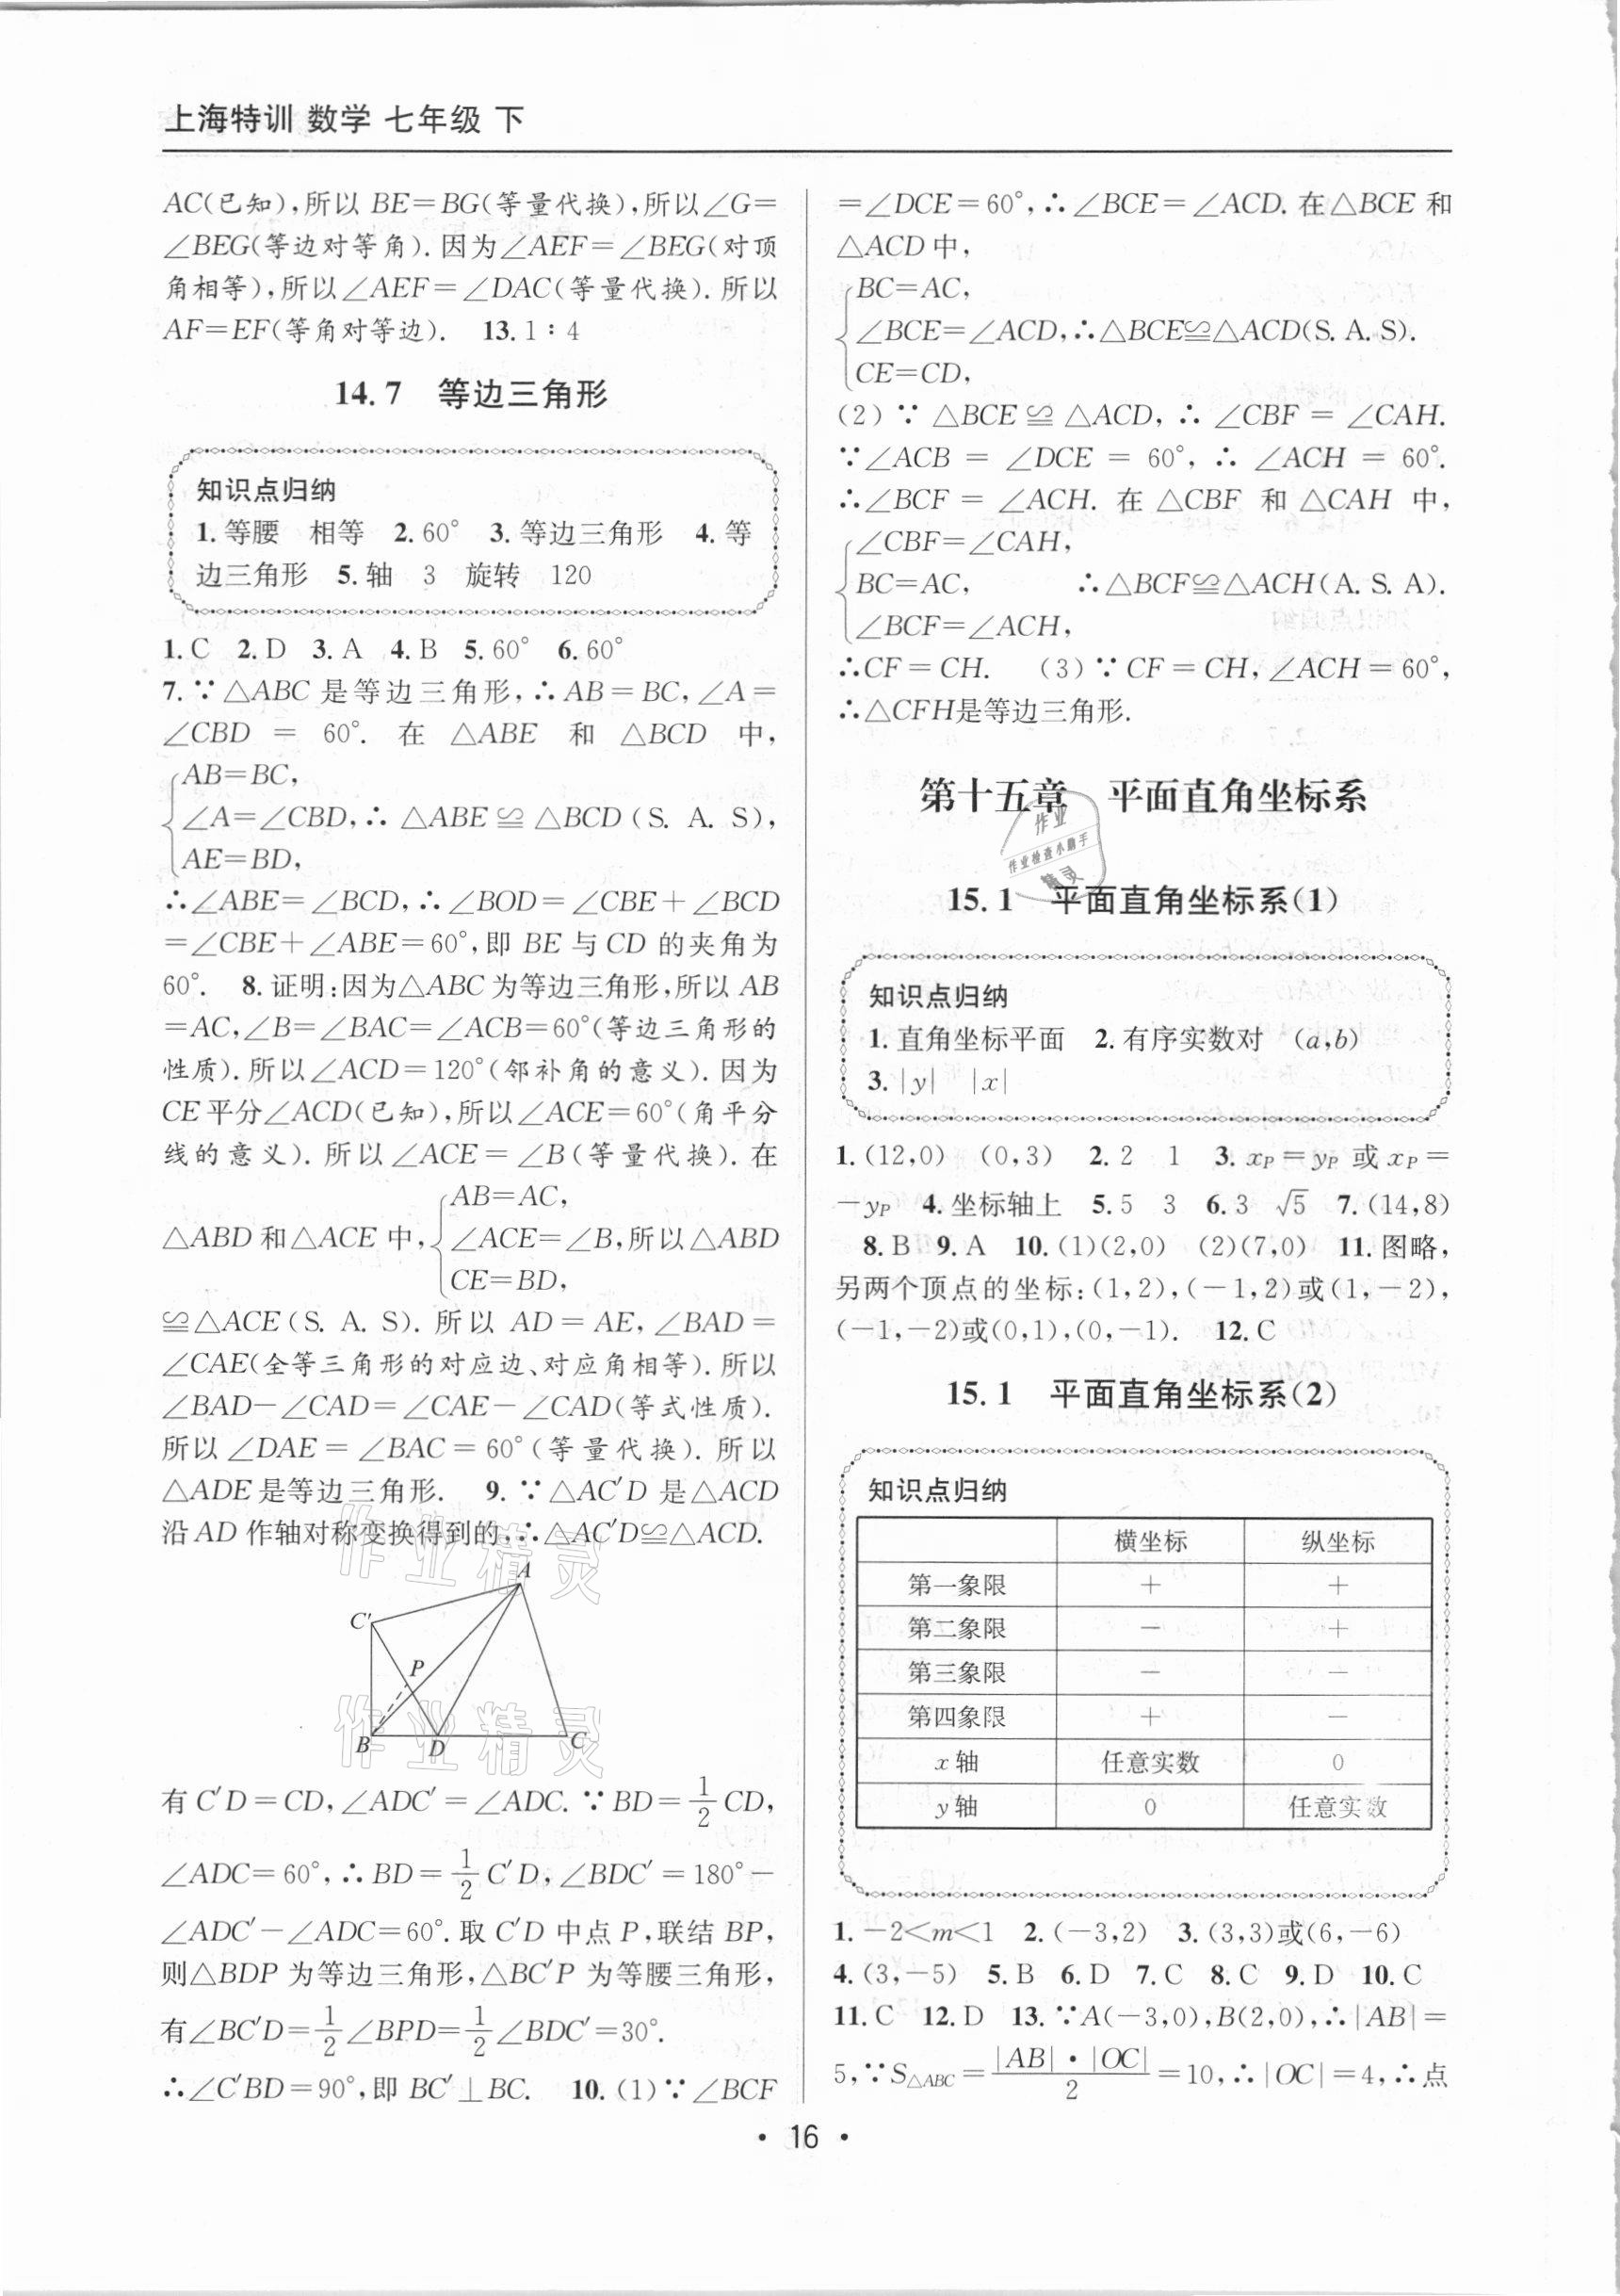 上海特训 数学 七年级 下
AC(已知),所以 BE=BG(等量代换),所以∠G=
∠BEG(等边对等角).因为∠AEF=∠BEG(对顶
角相等),所以∠AEF=∠DAC(等量代换).所以
AF=EF(等角对等边). 13. 1∶4
14.7 等边三角形
知识点归纳
1. 等腰 相等 2. 60° 3. 等边三角形 4. 等
边三角形 5. 轴 3 旋转 120
1. C 2. D 3. A 4. B 5. 60° 6. 60°
7. ∵△ABC 是等边三角形,∴AB=BC,∠A=
∠CBD = 60°. 在 △ABE 和 △BCD 中,
AB=BC,
∠A=∠CBD,∴△ABE≌△BCD(S. A. S),
AE=BD,
∴∠ABE=∠BCD,∴∠BOD=∠CBE+∠BCD
=∠CBE+∠ABE=60°,即 BE 与 CD 的夹角为
60°. 8. 证明:因为△ABC 为等边三角形,所以 AB
=AC,∠B=∠BAC=∠ACB=60°(等边三角形的
性质).所以∠ACD=120°(邻补角的意义).因为
CE 平分∠ACD(已知),所以∠ACE=60°(角平分
线的意义).所以∠ACE=∠B(等量代换).在
AB=AC,
△ABD 和△ACE 中,∠ACE=∠B,所以△ABD
CE=BD,
≌△ACE(S. A. S).所以 AD=AE,∠BAD=
∠CAE(全等三角形的对应边、对应角相等).所以
∠BAD-∠CAD=∠CAE-∠CAD(等式性质).
所以∠DAE=∠BAC=60°(等量代换).所以
△ADE 是等边三角形. 9. ∵△AC′D 是△ACD
沿 AD 作轴对称变换得到的,∴△AC′D≌△ACD.
A
C′
P
B D C
有 C′D=CD,∠ADC′=∠ADC. ∵BD=1/2CD,
∠ADC=60°,∴BD=1/2C′D,∠BDC′=180°-
∠ADC′-∠ADC=60°.取 C′D 中点 P,联结 BP,
则△BDP 为等边三角形,△BC′P 为等腰三角形,
有∠BC′D=1/2∠BPD=1/2∠BDC′=30°.
∴∠C′BD=90°,即 BC′⊥BC. 10. (1)∵∠BCF
=∠DCE=60°,∴∠BCE=∠ACD. 在△BCE 和
△ACD 中,
BC=AC,
∠BCE=∠ACD,∴△BCE≌△ACD(S. A. S).
CE=CD,
(2)∵△BCE≌△ACD,∴∠CBF=∠CAH.
∵∠ACB=∠DCE=60°,∴∠ACH=60°.
∴∠BCF=∠ACH. 在△CBF 和△CAH 中,
∠CBF=∠CAH,
BC=AC, ∴△BCF≌△ACH(A. S. A).
∠BCF=∠ACH,
∴CF=CH. (3)∵CF=CH,∠ACH=60°,
∴△CFH是等边三角形.
第十五章 平面直角坐标系
15.1 平面直角坐标系(1)
知识点归纳
1. 直角坐标平面 2. 有序实数对 (a,b)
3. |y| |x|
1. (12,0) (0,3) 2. 2 1 3. xP=yP 或 xP=
-yP 4. 坐标轴上 5. 5 3 6. 3 √5 7. (14,8)
8. B 9. A 10. (1)(2,0) (2)(7,0) 11. 图略,
另两个顶点的坐标:(1,2),(-1,2)或(1,-2),
(-1,-2)或(0,1),(0,-1). 12. C
15.1 平面直角坐标系(2)
知识点归纳
横坐标 纵坐标
第一象限 + +
第二象限 - +
第三象限 - -
第四象限 + -
x 轴 任意实数 0
y 轴 0 任意实数
1. -2<m<1 2. (-3,2) 3. (3,3)或(6,-6)
4. (3,-5) 5. B 6. D 7. C 8. C 9. D 10. C
11. C 12. D 13. ∵A(-3,0),B(2,0),∴|AB|=
5,∵S△ABC=|AB|·|OC|/2=10,∴|OC|=4,∴点
· 16 ·
作业
作业检查小助手
精灵
作业精灵
作业精灵